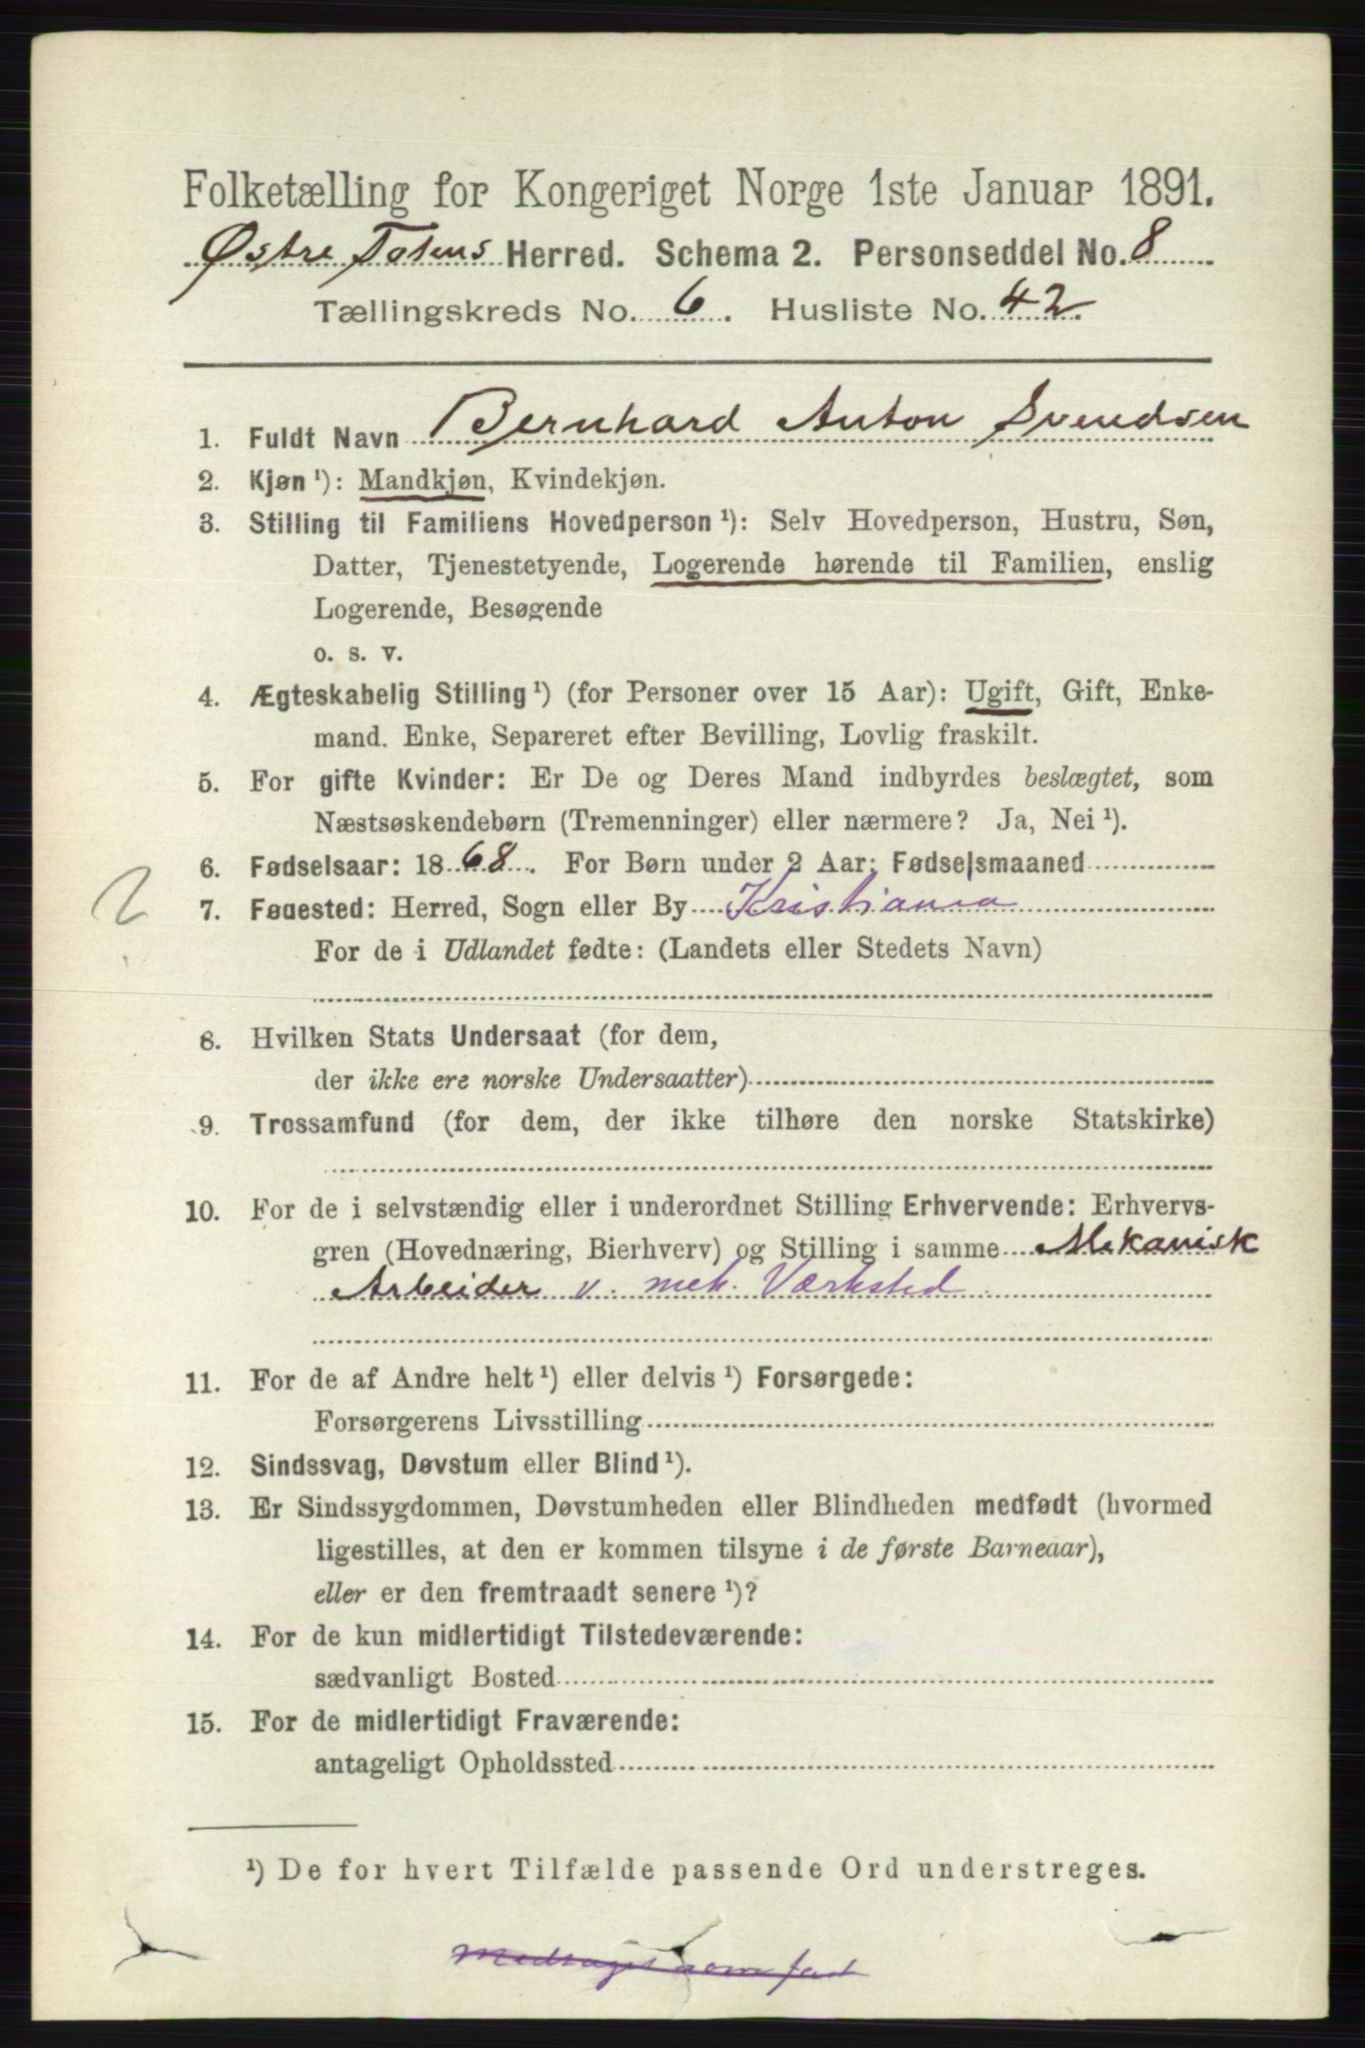 Folketælling for Kongeriget Norge 1ste Januar 1891.
Østre Totens Herred. Schema 2. Personseddel No. 8
Tællingskreds No. 6. Husliste No. 42.
1. Fuldt Navn Bernhard Anton Svendsen
2. Kjøn ¹): Mandkjøn, Kvindekjøn.
3. Stilling til Familiens Hovedperson ¹): Selv Hovedperson, Hustru, Søn,
Datter, Tjenestetyende, Logerende hørende til Familien, enslig
Logerende, Besøgende
o. s. v.
4. Ægteskabelig Stilling ¹) (for Personer over 15 Aar): Ugift, Gift, Enke-
mand. Enke, Separeret efter Bevilling, Lovlig fraskilt.
5. For gifte Kvinder: Er De og Deres Mand indbyrdes beslægtet, som
Næstsøskendebørn (Tremenninger) eller nærmere? Ja, Nei ¹).
6. Fødselsaar: 1868. For Børn under 2 Aar: Fødselsmaaned
2
7. Fødested: Herred, Sogn eller By Kristiania
For de i Udlandet fødte: (Landets eller Stedets Navn)
8. Hvilken Stats Undersaat (for dem,
der ikke ere norske Undersaatter)
9. Trossamfund (for dem, der ikke tilhøre den norske Statskirke)
10. For de i selvstændig eller i underordnet Stilling Erhvervende: Erhvervs-
gren (Hovednæring, Bierhverv) og Stilling i samme Mekanisk
Arbeider v. mek. Værksted
11. For de af Andre helt ¹) eller delvis ¹) Forsørgede:
Forsørgerens Livsstilling
12. Sindssvag, Døvstum eller Blind ¹).
13. Er Sindssygdommen, Døvstumheden eller Blindheden medfødt (hvormed
ligestilles, at den er kommen tilsyne i de første Barneaar),
eller er den fremtraadt senere ¹)?
14. For de kun midlertidigt Tilstedeværende:
sædvanligt Bosted
15. For de midlertidigt Fraværende:
antageligt Opholdssted
¹) De for hvert Tilfælde passende Ord understreges.
Medtaget som fast